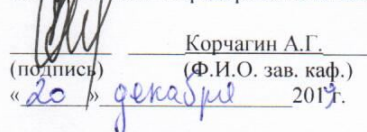 Корчагин А.Г.
(подпись) (Ф.И.О. зав. каф.)
«20» декабря 2017г.